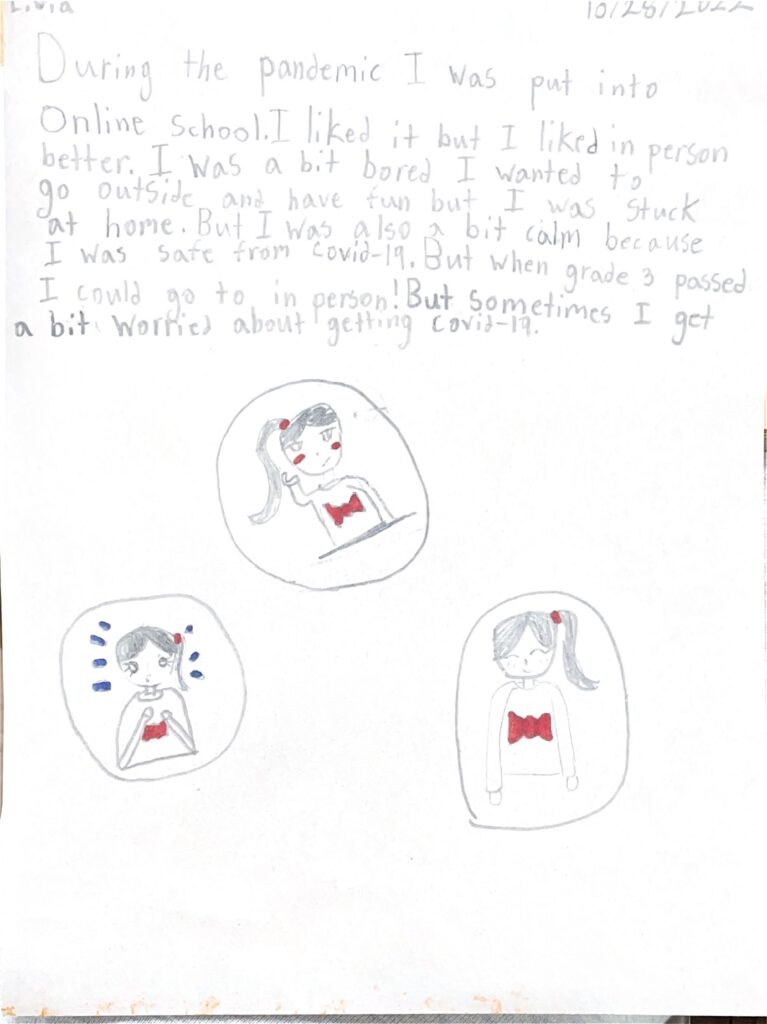 Livia 10/28/2022
During the pandemic I was put into
Online school. I liked it but I liked in person
better. I was a bit bored I wanted to
go outside and have fun but I was stuck
at home. But I was also a bit calm because
I was safe from Covid-19. But when grade 3 passed
I could go to in person! But sometimes I get
a bit worried about getting covid-19.